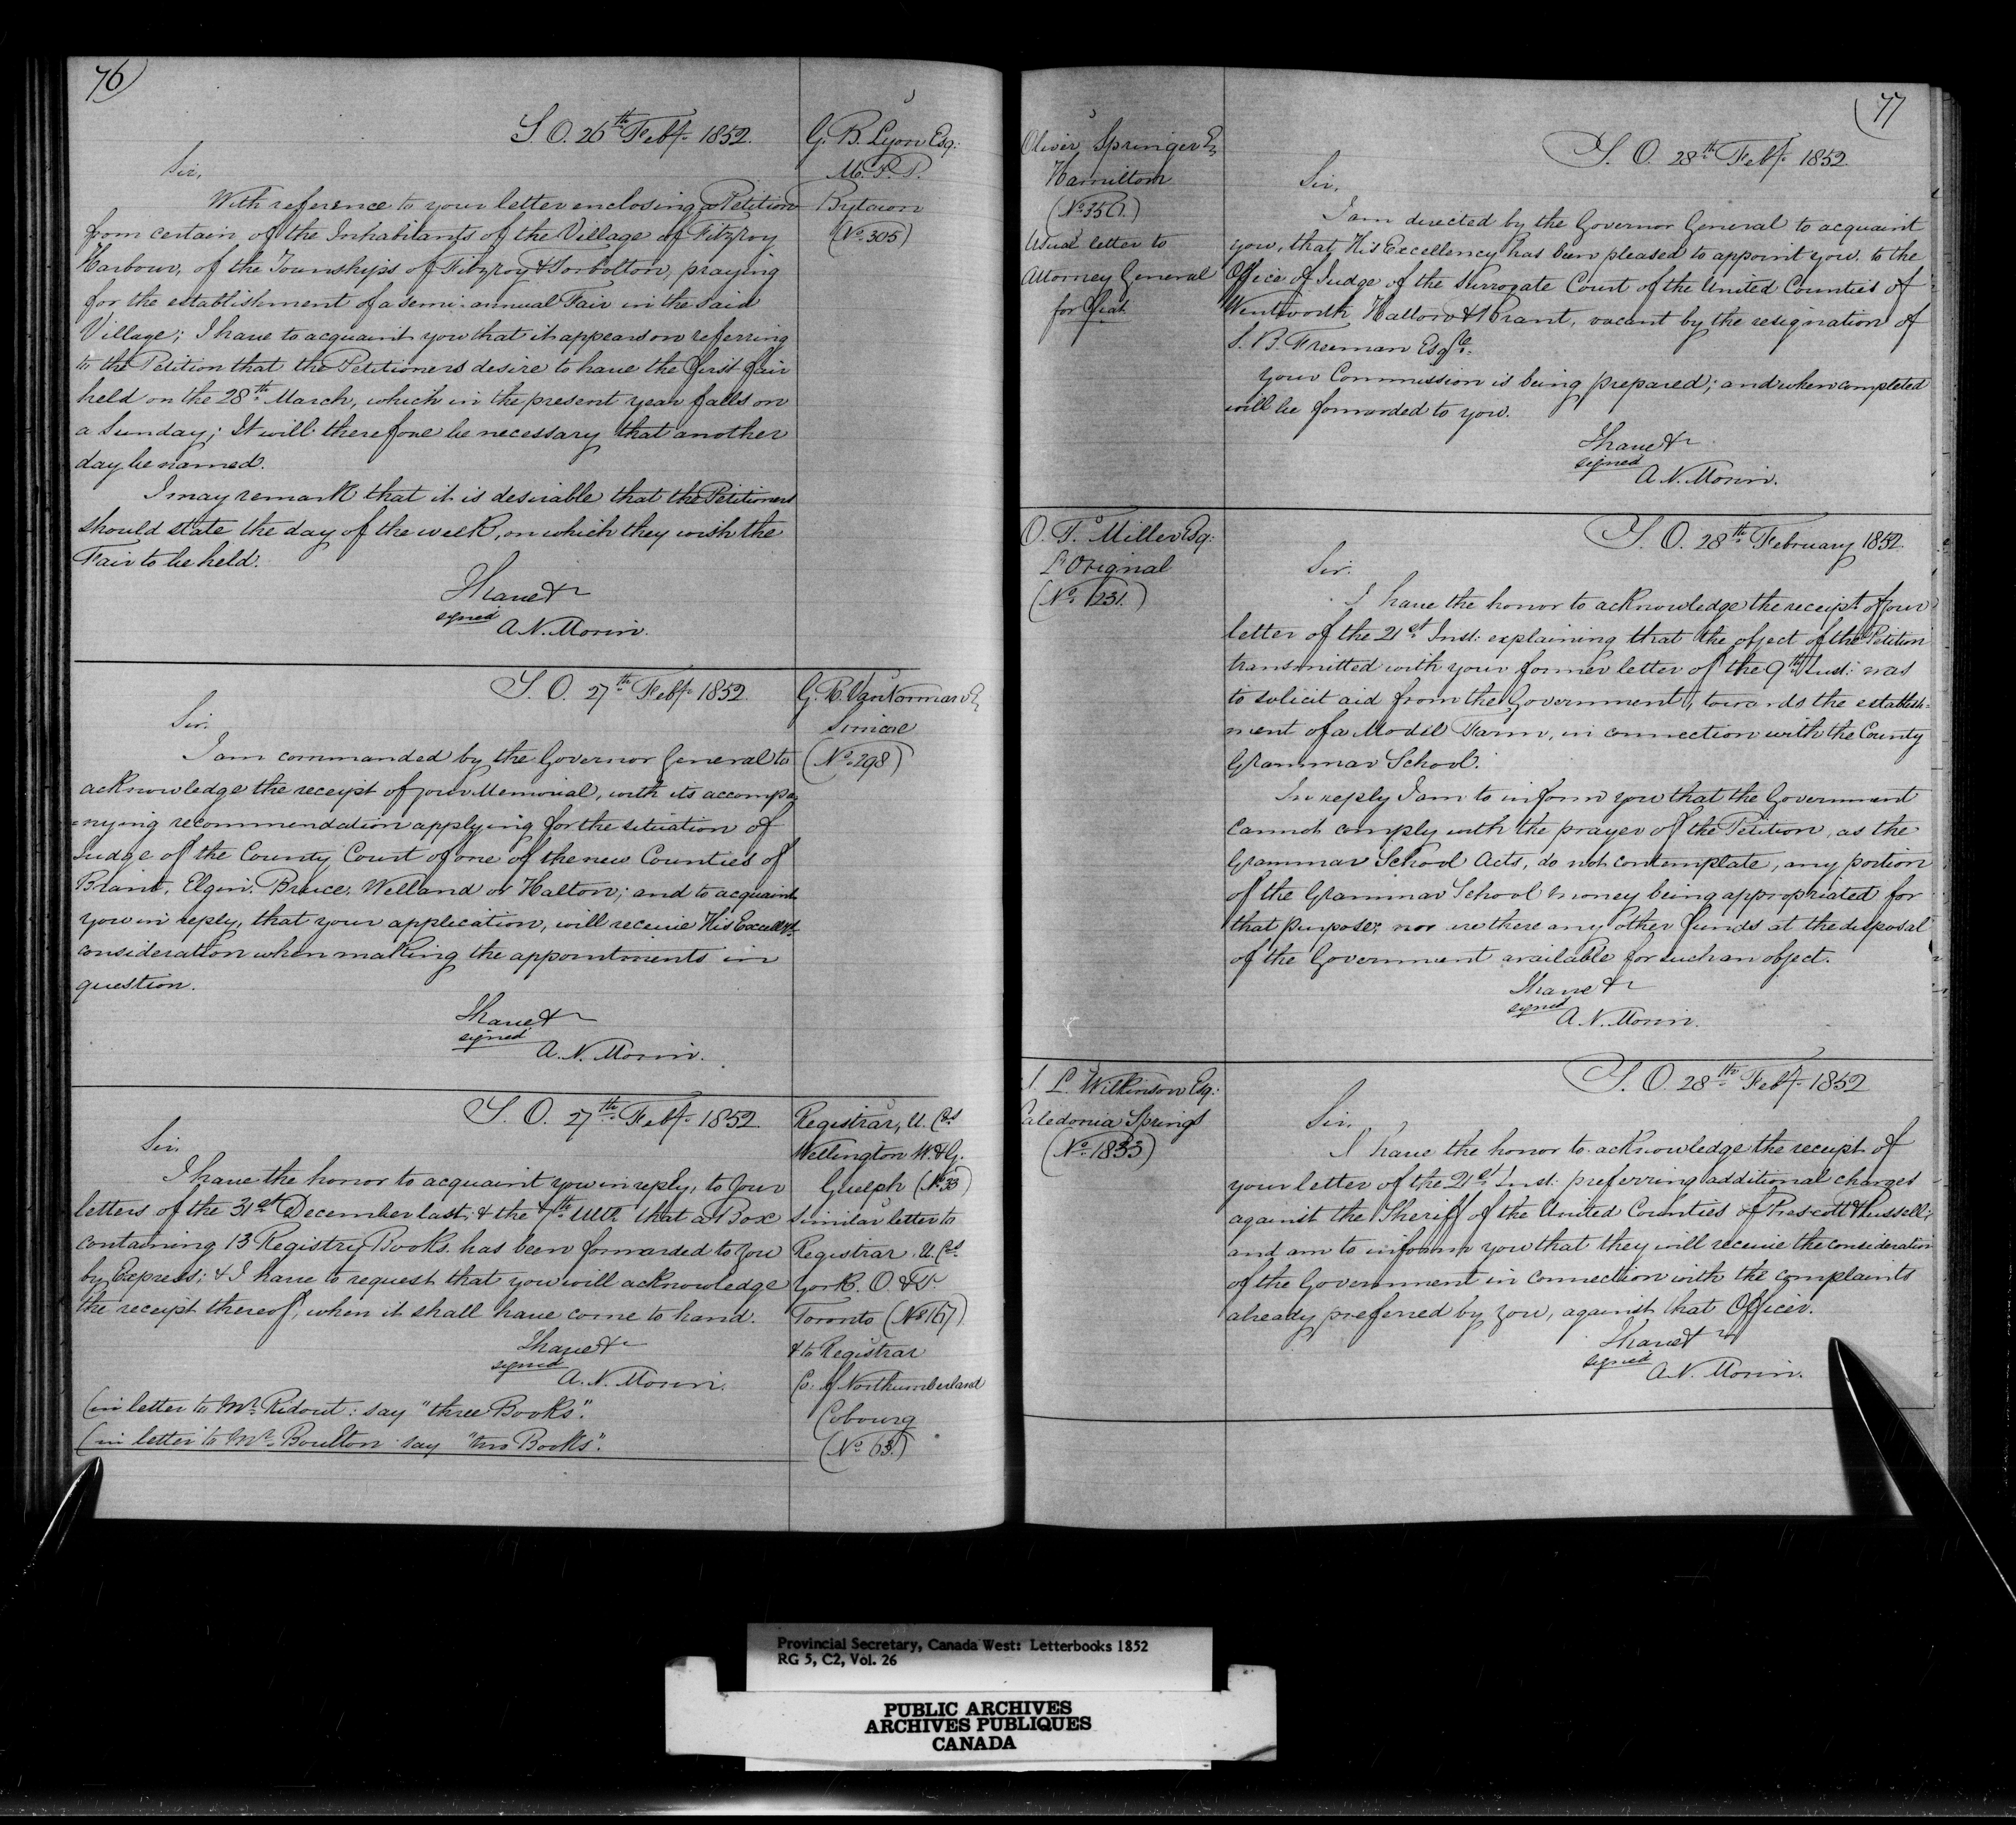 76
S. O. 26th Feby. 1852.
G. B. Lyon Esq:
M. P. P.
Bytown
(No. 305)
Sir,
With reference to your letter enclosing a Petition
from certain of the Inhabitants of the Village of Fitzroy
Harbour, of the Townships of Fitzroy & Torbolton, praying
for the establishment of a semi-annual Fair in the said
Village; I have to acquaint you that it appears on referring
to the Petition that the Petitioners desire to have the first fair
held on the 28th March, which in the present year falls on
a Sunday; It will therefore be necessary that another
day be named.
I may remark that it is desirable that the Petitioners
should state the day of the week, on which they wish the
Fair to be held.
I have &
signed
A. N. Morin.
S. O. 27th Feby. 1852
G. R. VanNorman E
Simcoe
(No. 298)
Sir.
I am commanded by the Governor General to
acknowledge the receipt of your Memorial, with its accompa
=nying recommendation applying for the situation of
Judge of the County Court of one of the new Counties of
Brant, Elgin, Bruce, Welland or Halton; and to acquaint
you in reply, that your application, will receive His Excelly's
consideration when making the appointments in
question.
I have &
signed
A. N. Morin.
S. O. 27th Feby. 1852
Registrar, U. Cos
Wellington W. & G.
Guelph (No. 33)
similar letter to
Registrar U. Cos.
York. O. & P
Toronto (No. 167)
& to Registrar
Co. of Northumberland
Cobourg
(No. 63.)
Sir.
I have the honor to acquaint you in reply, to your
letters of the 31st December last, & the 7th Ulto. that a Box
containing 13 Registry Books has been forwarded to you
by Express; & I have to request that you will acknowledge
the receipt thereof, when it shall have come to hand.
I have &
signed
A. N. Morin.
(in letter to Mr. Ridout: say "three Books".
(in letter to Mr. Boulton say "two Books".
77
Oliver Springer E
Hamilton
(No. 350.)
Usual letter to
Attorney General
for fiat
S. O. 28th Feby. 1852.
Sir.
I am directed by the Governor General to acquaint
you, that His Excellency has been pleased to appoint you, to the
Office of Judge of the Surrogate Court of the United Counties of
Wentworth Halton & Brant, vacant by the resignation of
S. B. Freeman Esqre.
Your Commission is being prepared; and when completed
will be forwarded to you.
I have &
signed
A. N. Morin.
O. T. Miller Esq:
L'Orignal
(No. 1231.)
S. O. 28th February 1852.
Sir.
I have the honor to acknowledge the receipt of your
letter of the 21st Inst: explaining that the object of the Petition
transmitted with your former letter of the 9th Inst: was
to solicit aid from the Government, towards the establish=
ment of a Model Farm, in connection with the County
Grammar School.
In reply I am to inform you that the Government
cannot comply with the prayer of the Petition, as the
Grammar School Acts, do not contemplate, any portion
of the Grammar School money being appropriated for
that purpose; nor are there any other funds at the disposal
of the Government available for such an object.
I have &
signed
A. N. Morin.
L. Wilkinson Esq:
Caledonia Springs
(No. 1833)
S. O. 28th Feby. 1852
Sir.
I have the honor to acknowledge the receipt of
your letter of the 21st Inst: preferring additional charges
against the Sheriff of the United Counties of Prescott & Russell;
and am to inform you that they will receive the consideration
of the Government in connection with the complaints
already preferred by you, against that Officer.
I have &
signed
A. N. Morin.
Provincial Secretary, Canada West: Letterbooks 1852
RG 5, C2, Vol. 26
PUBLIC ARCHIVES
ARCHIVES PUBLIQUES
CANADA